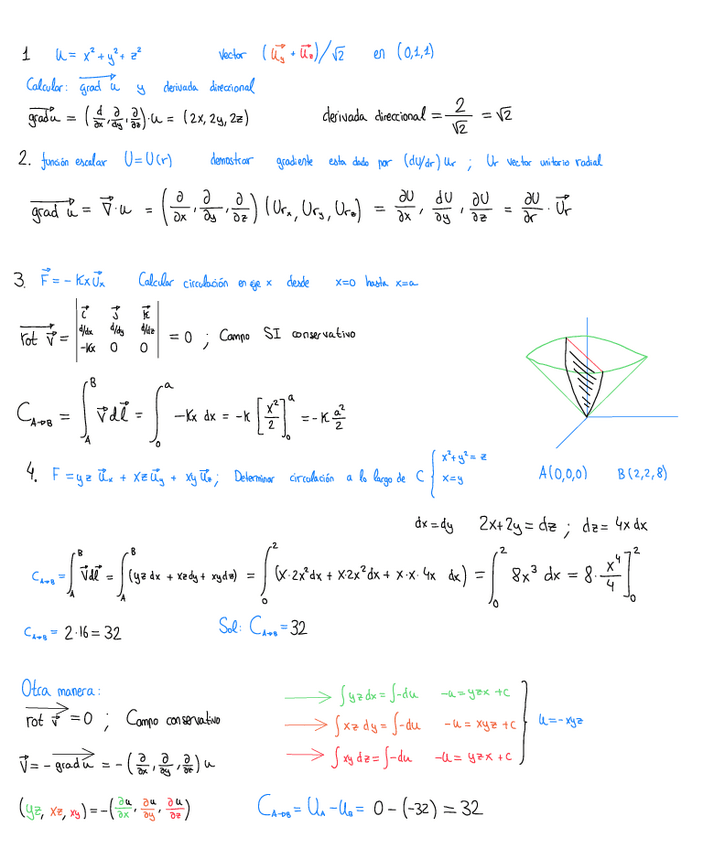 1 u = x² + y² + z² vector (u⃗y + u⃗z)/√2 en (0,1,1)
Calcular: grad u y derivada direccional
grad u = (d/∂x, ∂/∂y, ∂/∂z)·u = (2x, 2y, 2z) derivada direccional = 2/√2 = √2
2. función escalar U=U(r) demostrar gradiente esta dado por (dU/dr) ur ; Ur vector unitario radial
grad u = ∇⃗·u = (∂/∂x, ∂/∂y, ∂/∂z)(Urx, Ury, Urz) = ∂U/∂x, dU/∂y, ∂U/∂z = ∂U/∂r · U⃗r
3. F⃗ = -Kx u⃗x Calcular circulación en eje x desde x=0 hasta x=a
rot v⃗ = | i⃗ j⃗ k⃗ |
| d/dx d/dy d/dz |
| -Kx 0 0 | = 0 ; Campo SI conservativo
C A→B = ∫_A^B v⃗ dl⃗ = ∫_0^a -Kx dx = -K [x²/2]_0^a = -K a²/2
4. F = yz u⃗x + xz u⃗y + xy u⃗z; Determinar circulación a lo largo de C { x²+y² = z
x=y
A(0,0,0) B(2,2,8)
dx=dy 2x+2y=dz ; dz=4x dx
C A→B = ∫_A^B v⃗ dl⃗ = ∫_A^B (yz dx + xz dy + xy dz) = ∫_0^2 (x·2x² dx + x·2x² dx + x·x·4x dx) = ∫_0^2 8x³ dx = 8·x⁴/4]_0^2
C A→B = 2·16 = 32 Sol: C A→B = 32
Otra manera:
rot v⃗ = 0 ; Campo conservativo
v⃗ = -grad u = -(∂/∂x, ∂/∂y, ∂/∂z) u
(yz, xz, xy) = -(∂u/∂x, ∂u/∂y, ∂u/∂z)
→ ∫yz dx = ∫-du -u = yzx + c
→ ∫xz dy = ∫-du -u = xyz + c } u = -xyz
→ ∫xy dz = ∫-du -u = yzx + c
C A→B = UA - UB = 0 - (-32) = 32